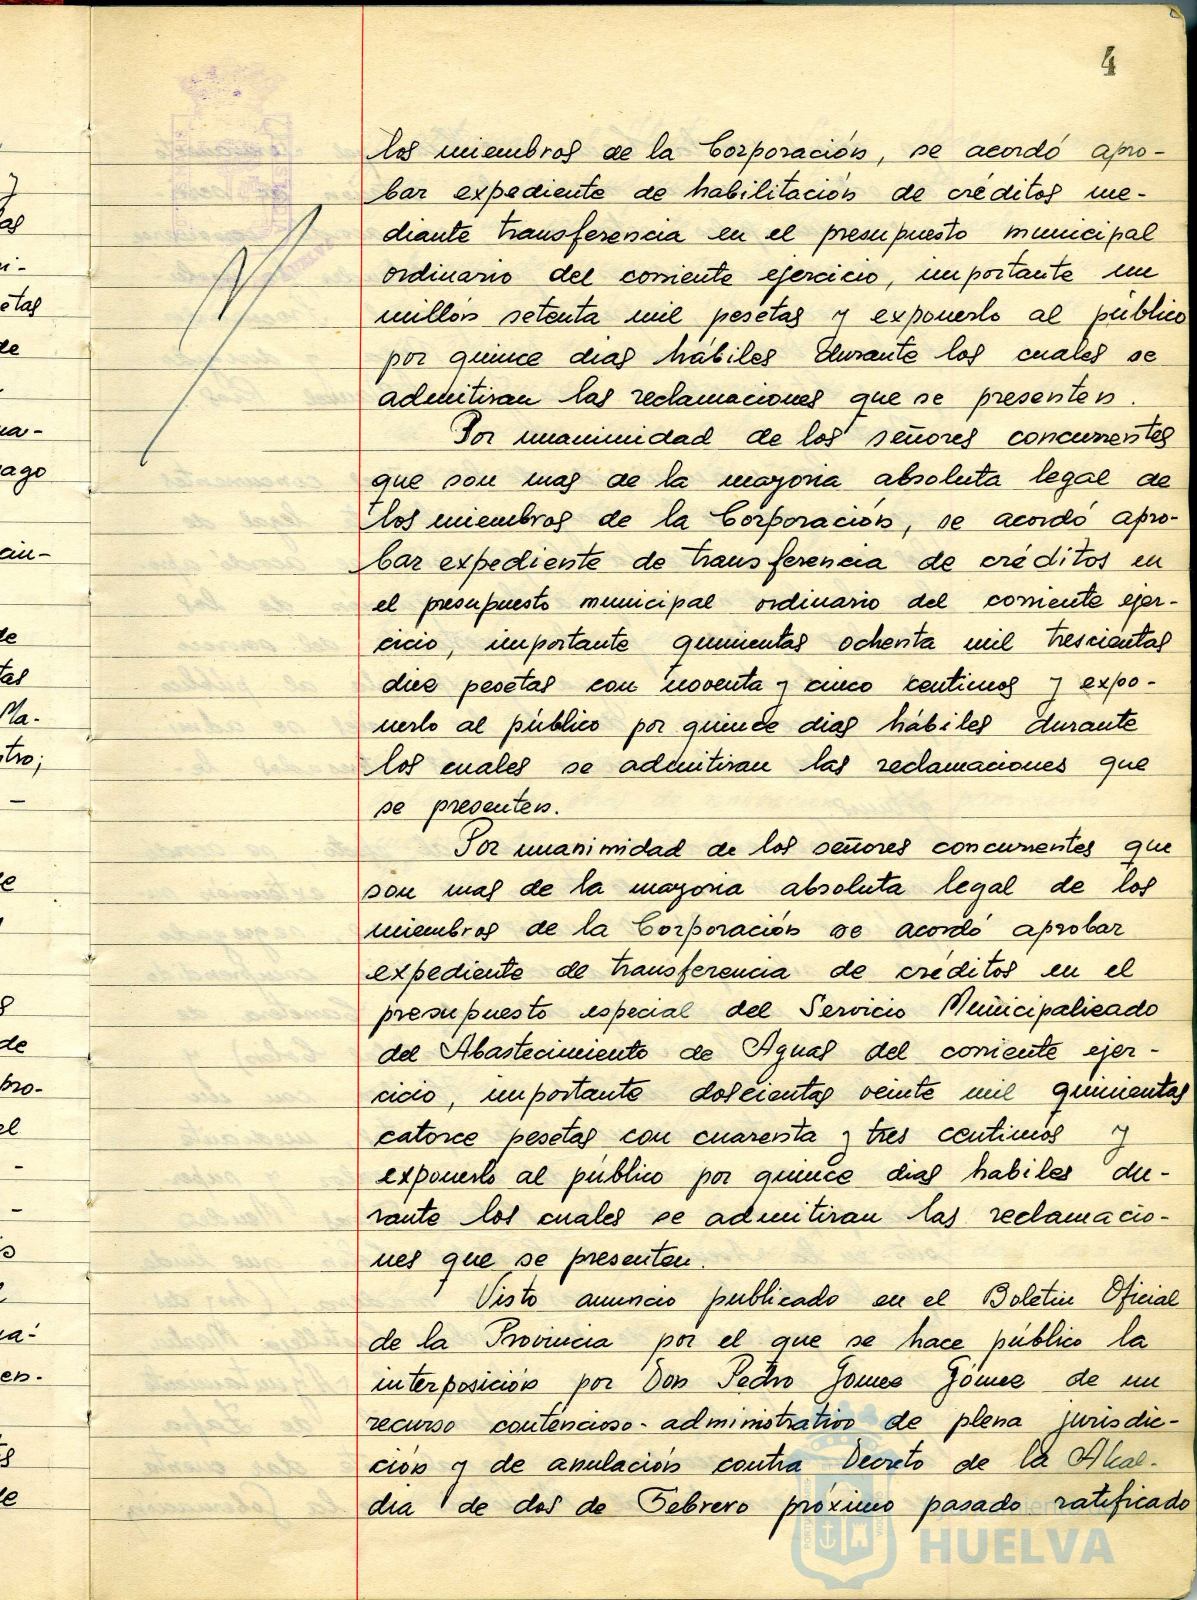 4
los miembros de la Corporación, se acordó apro-
bar expediente de habilitación de créditos me-
diante transferencia en el presupuesto municipal
ordinario del corriente ejercicio, importante un
millón setenta mil pesetas y exponerlo al público
por quince dias hábiles durante los cuales se
admitiran las reclamaciones que se presenten.
Por unanimidad de los señores concurrentes
que son mas de la mayoria absoluta legal de
los miembros de la Corporación, se acordó apro-
bar expediente de transferencia de créditos en
el presupuesto municipal ordinario del corriente ejer-
cicio, importante quinientas ochenta mil trescientas
diez pesetas con noventa y cinco centimos y expo-
nerlo al público por quince dias hábiles durante
los cuales se admitiran las reclamaciones que
se presenten.
Por unanimidad de los señores concurrentes que
son mas de la mayoria absoluta legal de los
miembros de la Corporación se acordó aprobar
expediente de transferencia de créditos en el
presupuesto especial del Servicio Municipalizado
del Abastecimiento de Aguas del corriente ejer-
cicio, importante doscientas veinte mil quinientas
catorce pesetas con cuarenta y tres centimos y
exponerlo al público por quince dias habiles du-
rante los cuales se admitiran las reclamacio-
nes que se presenten.
Visto anuncio publicado en el Boletin Oficial
de la Provincia por el que se hace público la
interposición por Don Pedro Gomez Gómez de un
recurso contencioso-administrativo de plena jurisdic-
ción y de anulación contra Decreto de la Alcal-
dia de dos de Febrero próximo pasado ratificado
HUELVA